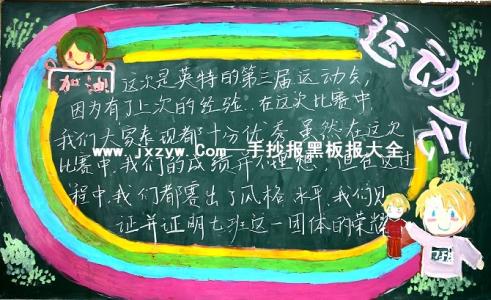 运动会
加油
这次是英特的第三届运动会,
因为有了上次的经验.在这次比赛中
我们大家表现都十分优秀.虽然在这次
www.jxzyw.Com—手抄报黑板报大全
比赛中.我们的成绩并不理想,但在这过
程中.我们都赛出了风格 水平.我们见
证并证明七班这一团体的荣耀